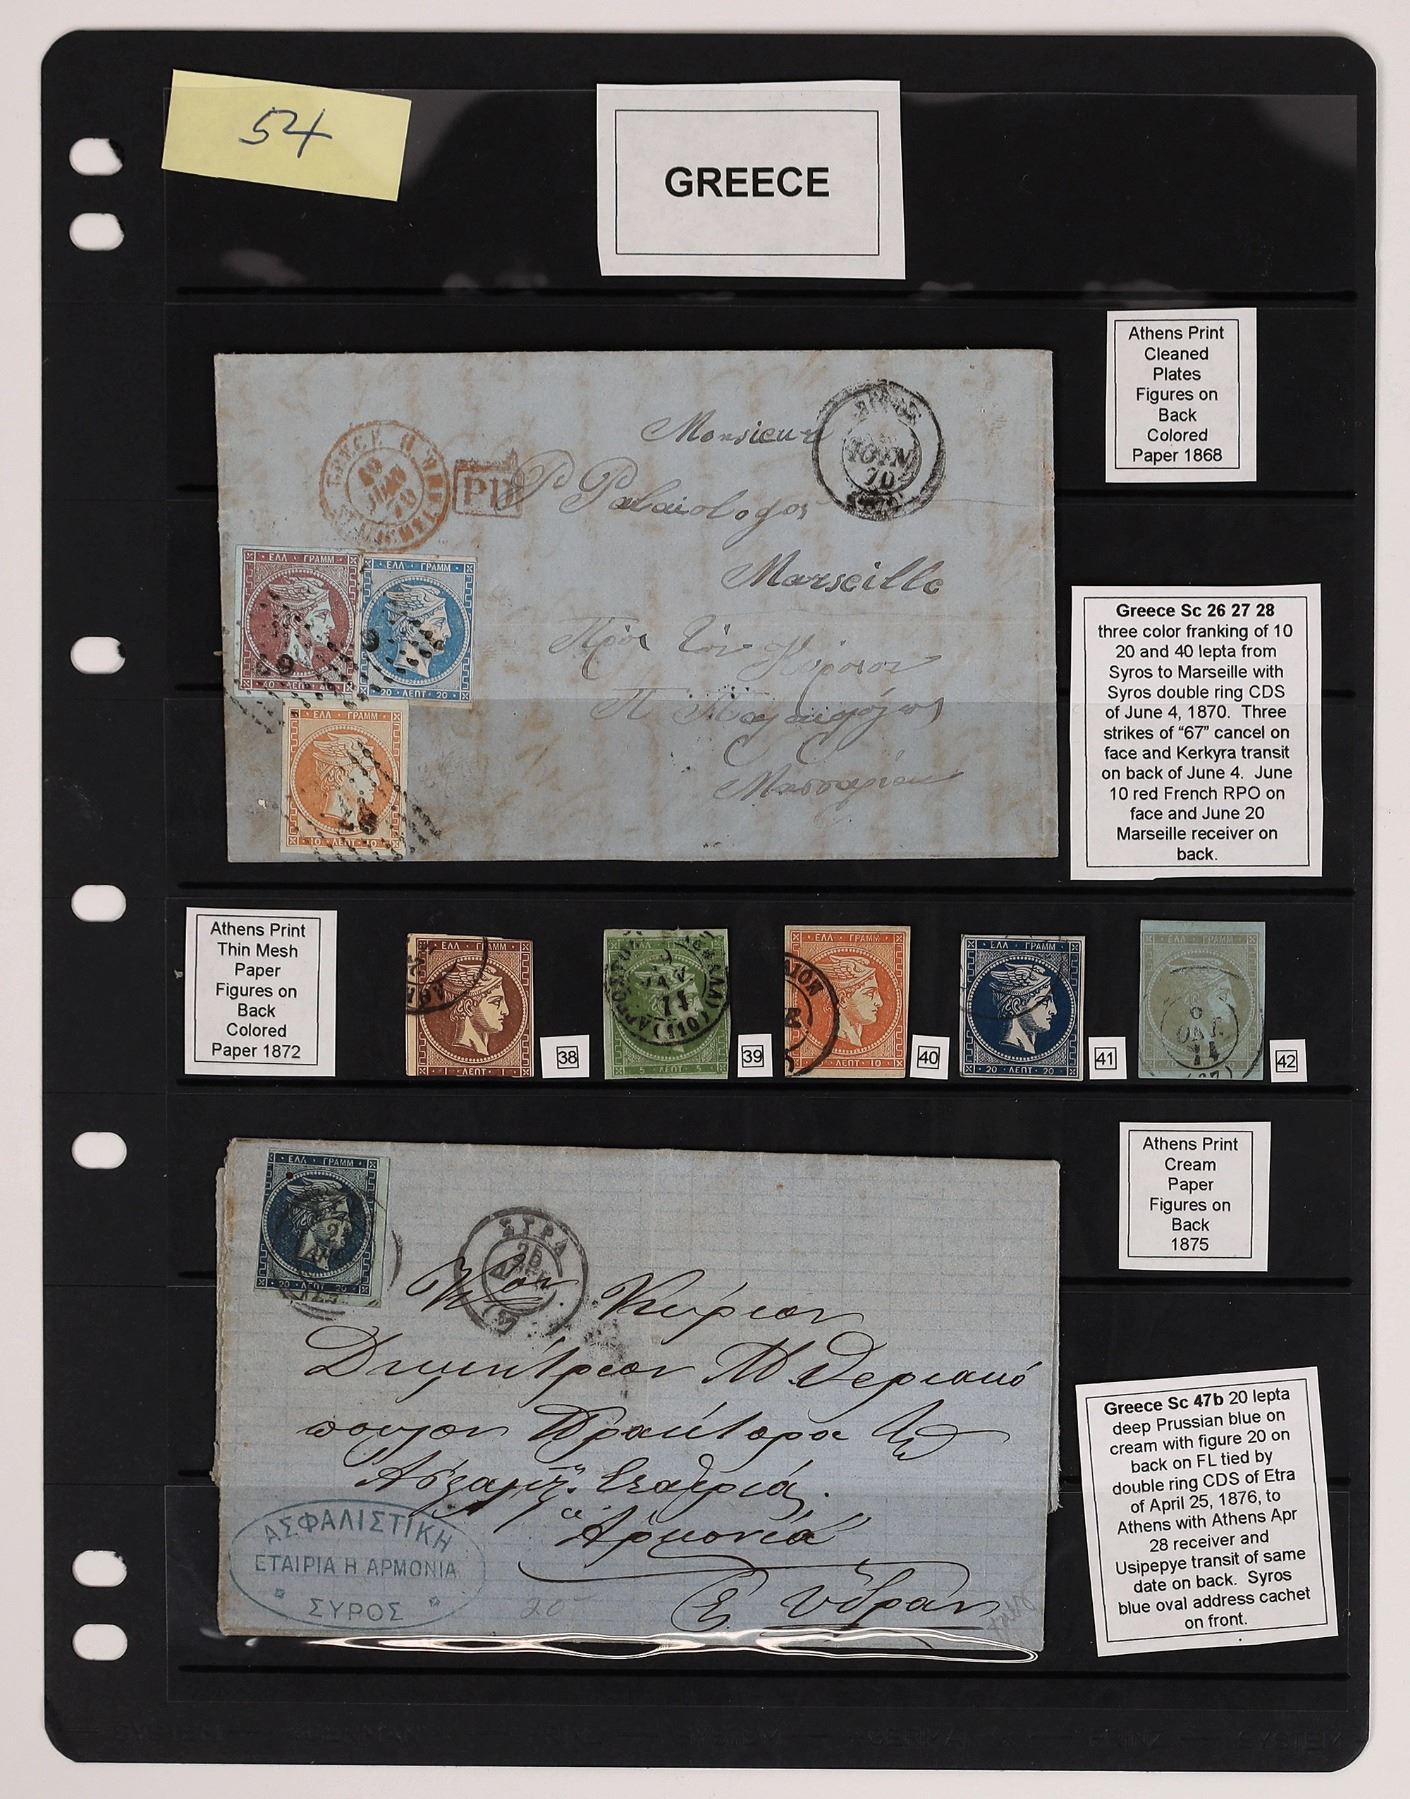 54
GREECE
Athens Print
Cleaned
Plates
Figures on
Back
Colored
Paper 1868
Monsieur
P. Palaiologos
Marseille
PD
70
ΕΛΛ · ΓΡΑΜΜ
40 ΛΕΠΤ
ΕΛΛ · ΓΡΑΜΜ
20 · ΛΕΠΤ · 20
ΕΛΛ · ΓΡΑΜΜ
10 · ΛΕΠΤ · 10
Greece Sc 26 27 28
three color franking of 10
20 and 40 lepta from
Syros to Marseille with
Syros double ring CDS
of June 4, 1870. Three
strikes of "67" cancel on
face and Kerkyra transit
on back of June 4. June
10 red French RPO on
face and June 20
Marseille receiver on
back.
Athens Print
Thin Mesh
Paper
Figures on
Back
Colored
Paper 1872
ΕΛΛ · ΓΡΑΜΜ
1 · ΛΕΠΤ · 1
38
5 · ΛΕΠΤ · 5
39
ΕΛΛ · ΓΡΑΜΜ
ΛΕΠΤ · 10
40
ΕΛΛ · ΓΡΑΜΜ
20 · ΛΕΠΤ · 20
41
ΕΛΛ · ΓΡΑΜΜ
42
Athens Print
Cream
Paper
Figures on
Back
1875
ΕΛΛ · ΓΡΑΜΜ
20 · ΛΕΠΤ · 20
ΣΥΡΑ
Κύριον
Δημήτριον
Πράκτορα
Αρμονία
Ύδραν
20
ΑΣΦΑΛΙΣΤΙΚΗ
ΕΤΑΙΡΙΑ Η ΑΡΜΟΝΙΑ
ΣΥΡΟΣ
Greece Sc 47b 20 lepta
deep Prussian blue on
cream with figure 20 on
back on FL tied by
double ring CDS of Etra
of April 25, 1876, to
Athens with Athens Apr
28 receiver and
Usipepye transit of same
date on back. Syros
blue oval address cachet
on front.